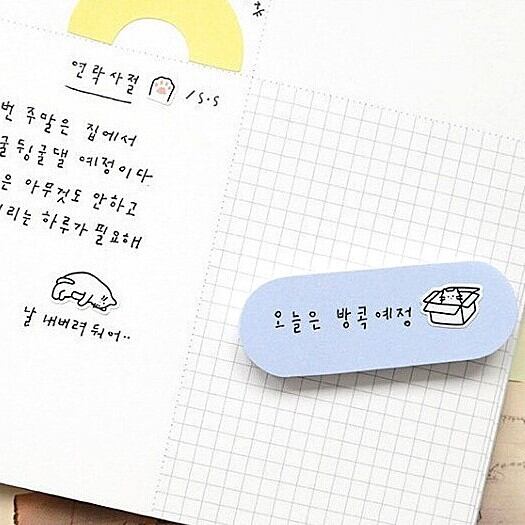 연락사절 / s.s
번 주말은 집에서
뒹굴댈 예정이다
은 아무것도 안하고
리는 하루가 필요해
날 내버려 둬어..
오늘은 방콕예정